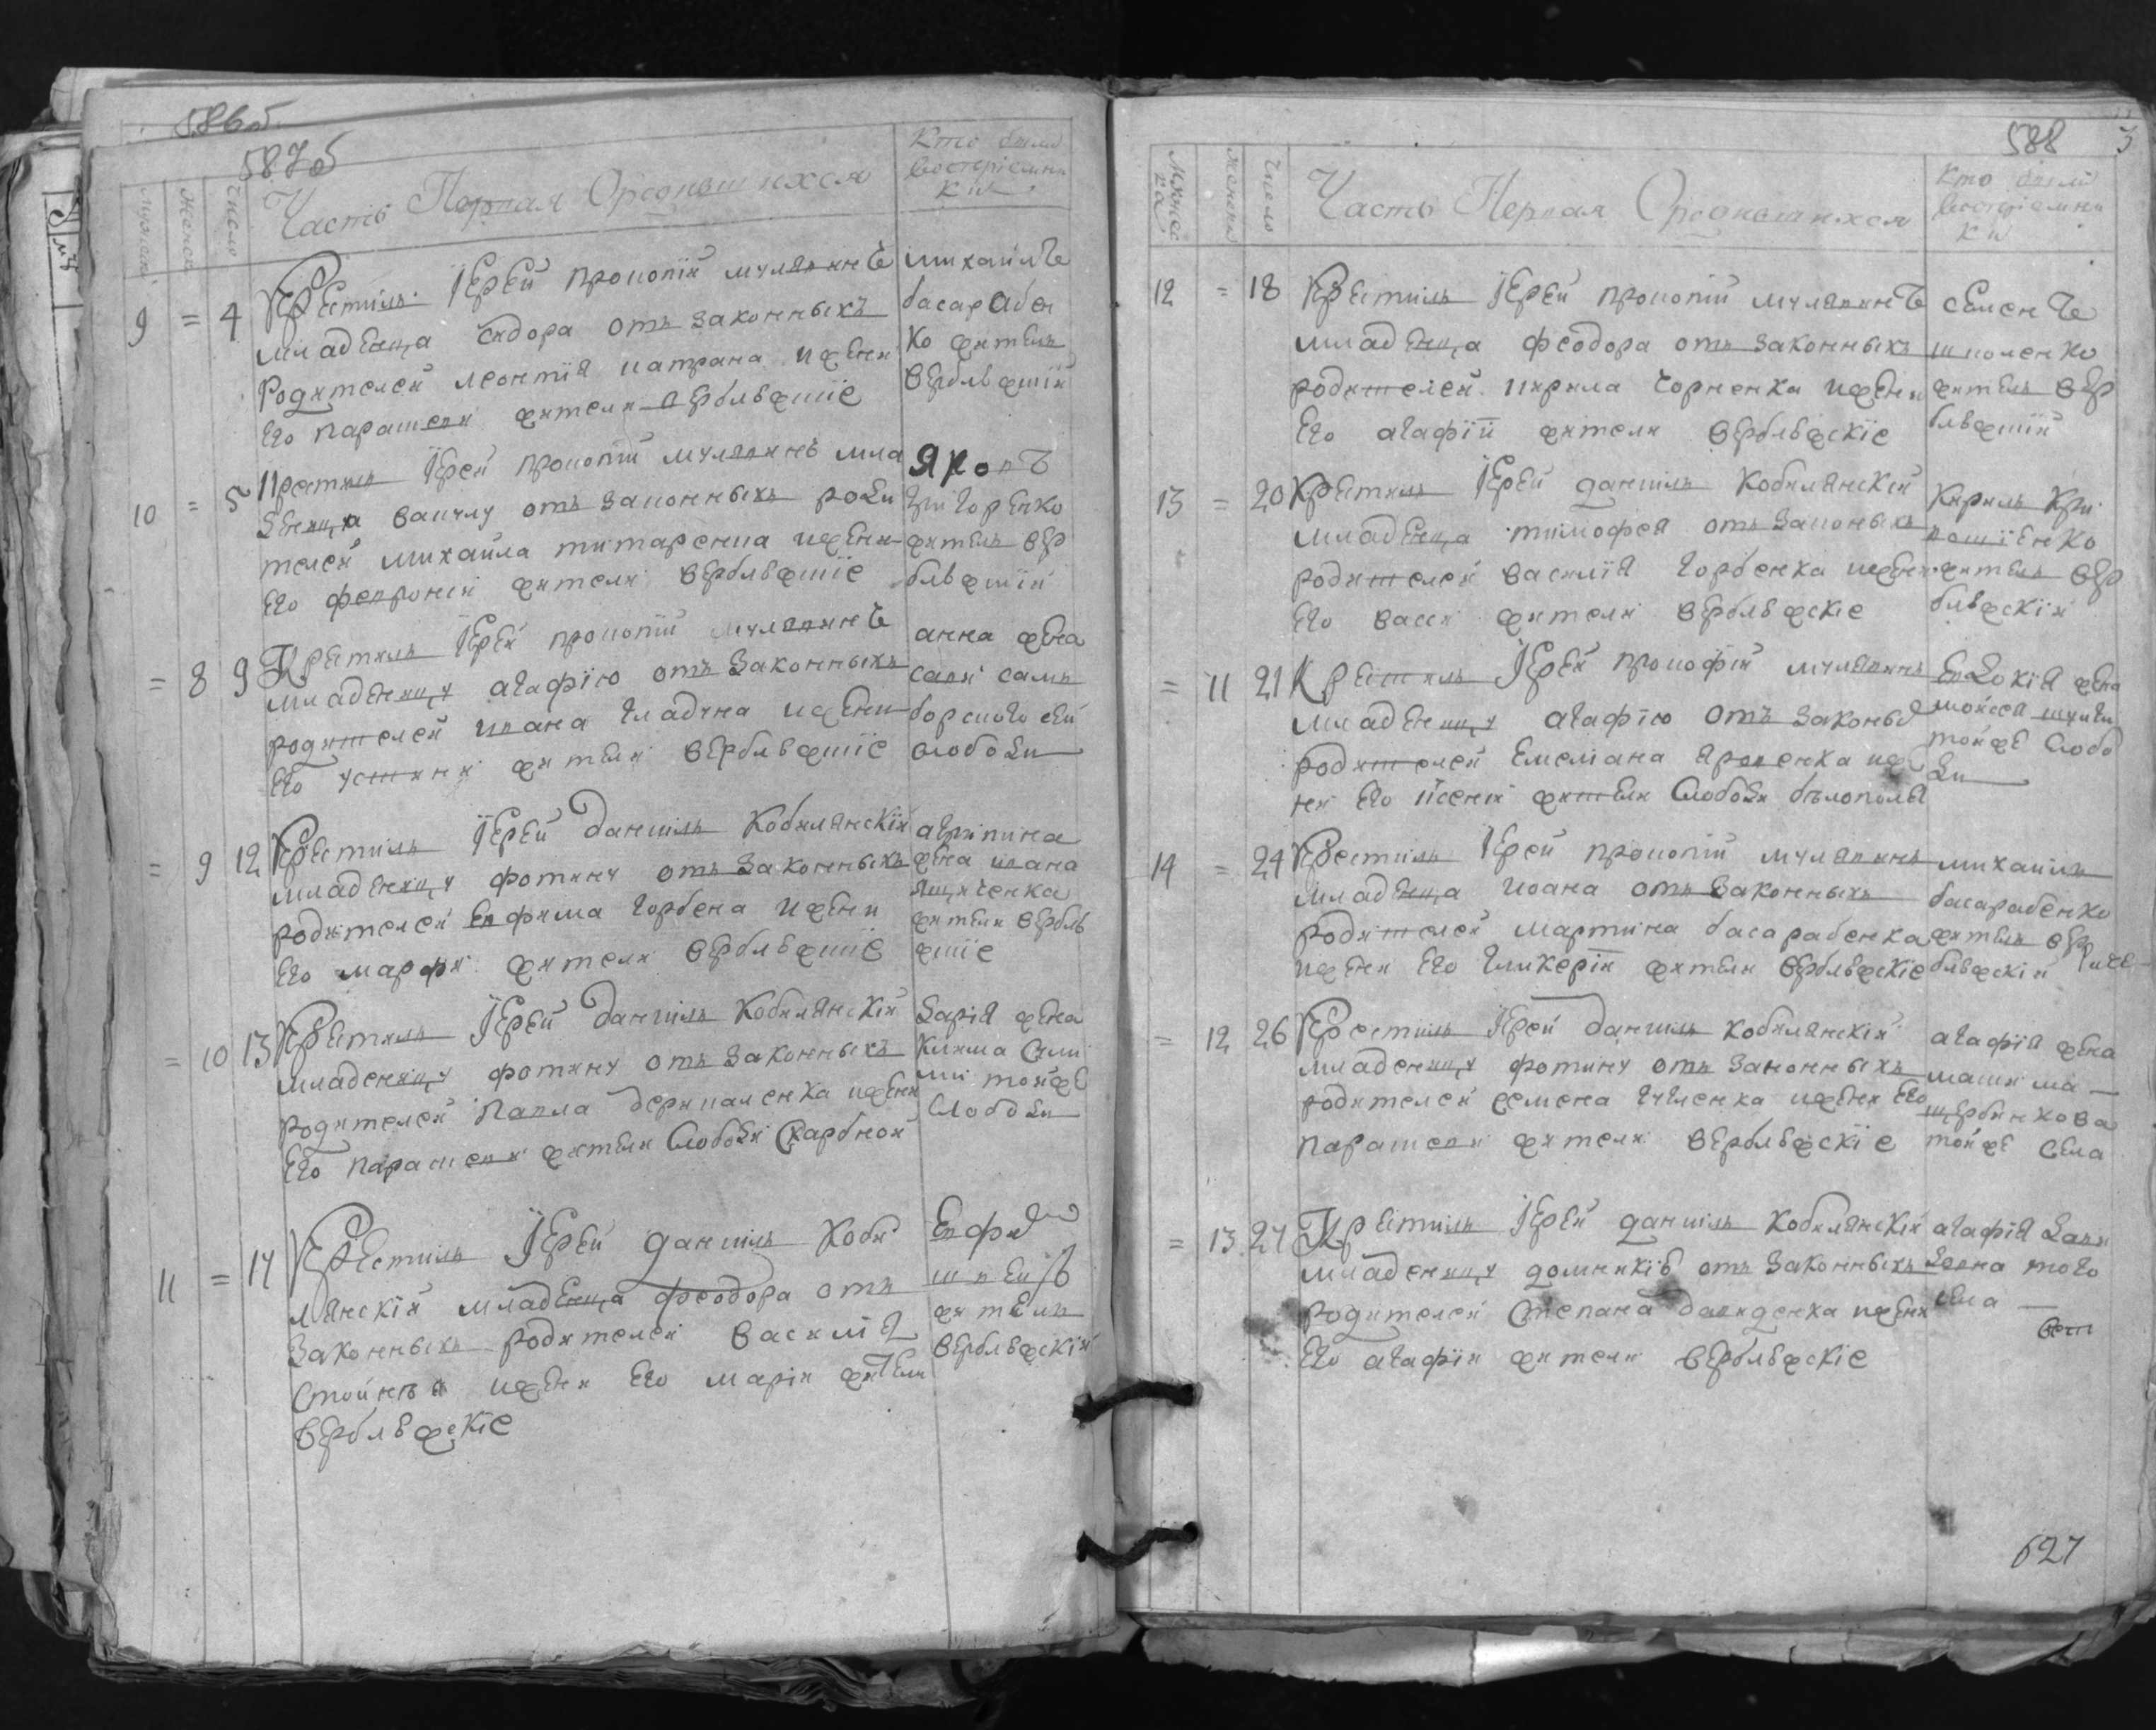 586об
587об
Мужеска
Женска
Число
Часть Первая Орсоновшихся
Кто были
восприемни
ки
9 = 4 Крестилъ Іерей Прокопій Мулявинъ
младенца Сидора отъ законныхъ
родителей леонтія патрана ижени
его парасеви жители верблѣжские
михайлъ
басарабен
ко житель
верблѣжский
10 = 5 Крестилъ Іерей прокопій мулявинъ мла
денца вакулу отъ законныхъ роди
телей михайла титаренка ижени
его февронии жители верблѣжские
Яковъ
григоренко
житель вер
блѣжский
= 8 9 Крестилъ Іерей прокопій мулявинъ
младеницу агафію отъ законныхъ
родителей ивана гладуна ижени
его устини жители верблѣжские
анна жена
сави самъ
борского сей
слободи
= 9 12 Крестилъ Іерей даниилъ Кобилянский
младеницу фотину отъ законныхъ
родителей Евфима горбена ижени
его марфи жители верблѣжские
агрипина
жена ивана
ящиченка
жители верблѣ
жские
= 10 13 Крестилъ Іерей даниилъ Кобилянский
младеницу фотину отъ законныхъ
родителей павла дерипаленка ижени
его парасеви жители слободи Скарбной
дарія жена
клима
тойже
слободи
11 = 14 Крестилъ Іерей даниилъ Коби
лянский младенца феодора отъ
законныхъ родителей василія
Стойнѣа ижени его марии жители
верблѣжские
Евфим
швецъ
житель
верблѣжский
588
Мужес
ка
Женска
Число
Часть Первая Орсоновшихся
Кто были
восприемни
ки
12 = 18 Крестилъ Іерей прокопій мулявинъ
младенца феодора отъ законныхъ
родителей кирила Чорненка ижени
его агафіи жители верблѣжские
семенъ
шполенко
житель вер
блѣжский
13 = 20 Крестилъ Іерей даниилъ Кобилянский
младенца тимофея отъ законыхъ
родителей василія горбенка ижени
его васси жители верблѣжские
Кирилъ Кри
вошіенко
житель вер
блѣжский
= 11 21 Крестилъ Іерей прокофий мулявинъ
младеницу агафію отъ законы
родителей Емелиана яровенка иже
ни его ксении жители слободи бѣлополя
Евдокія жена
мойсея
тойже слобо
ди
14 = 24 Крестилъ Іерей прокопій мулявинъ
младенца иоана отъ законныхъ
родителей мартина басарабенка
ижени его гликерии жители верблѣжские
михайлъ
басарабенко
житель вер
блѣжский
= 12 26 Крестилъ Іерей даниилъ кобилянский
младеницу фотину отъ законныхъ
родителей семена гуленка ижени его
парасеви жители верблѣжские
агафія жена
максима
щербинкова
тойже села
= 13 27 Крестилъ Іерей даниилъ кобилянский
младеницу домникию отъ законныхъ
родителей Степана давиденка ижени
его агафии жители верблѣжские
агафія дави
довна того
села
627